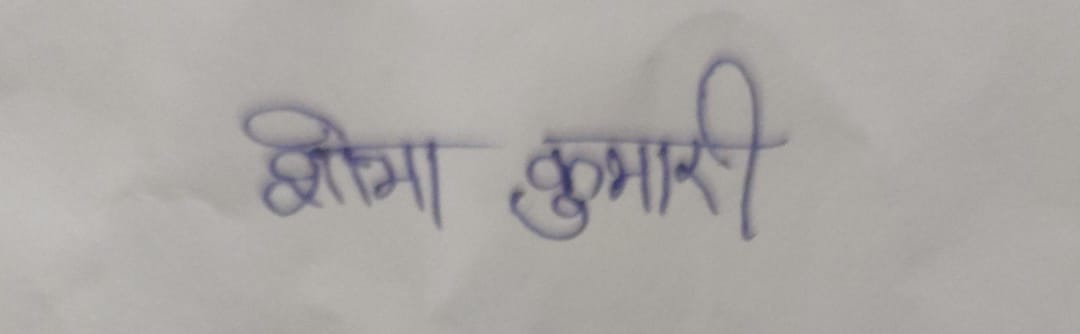 शोभा कुमारी